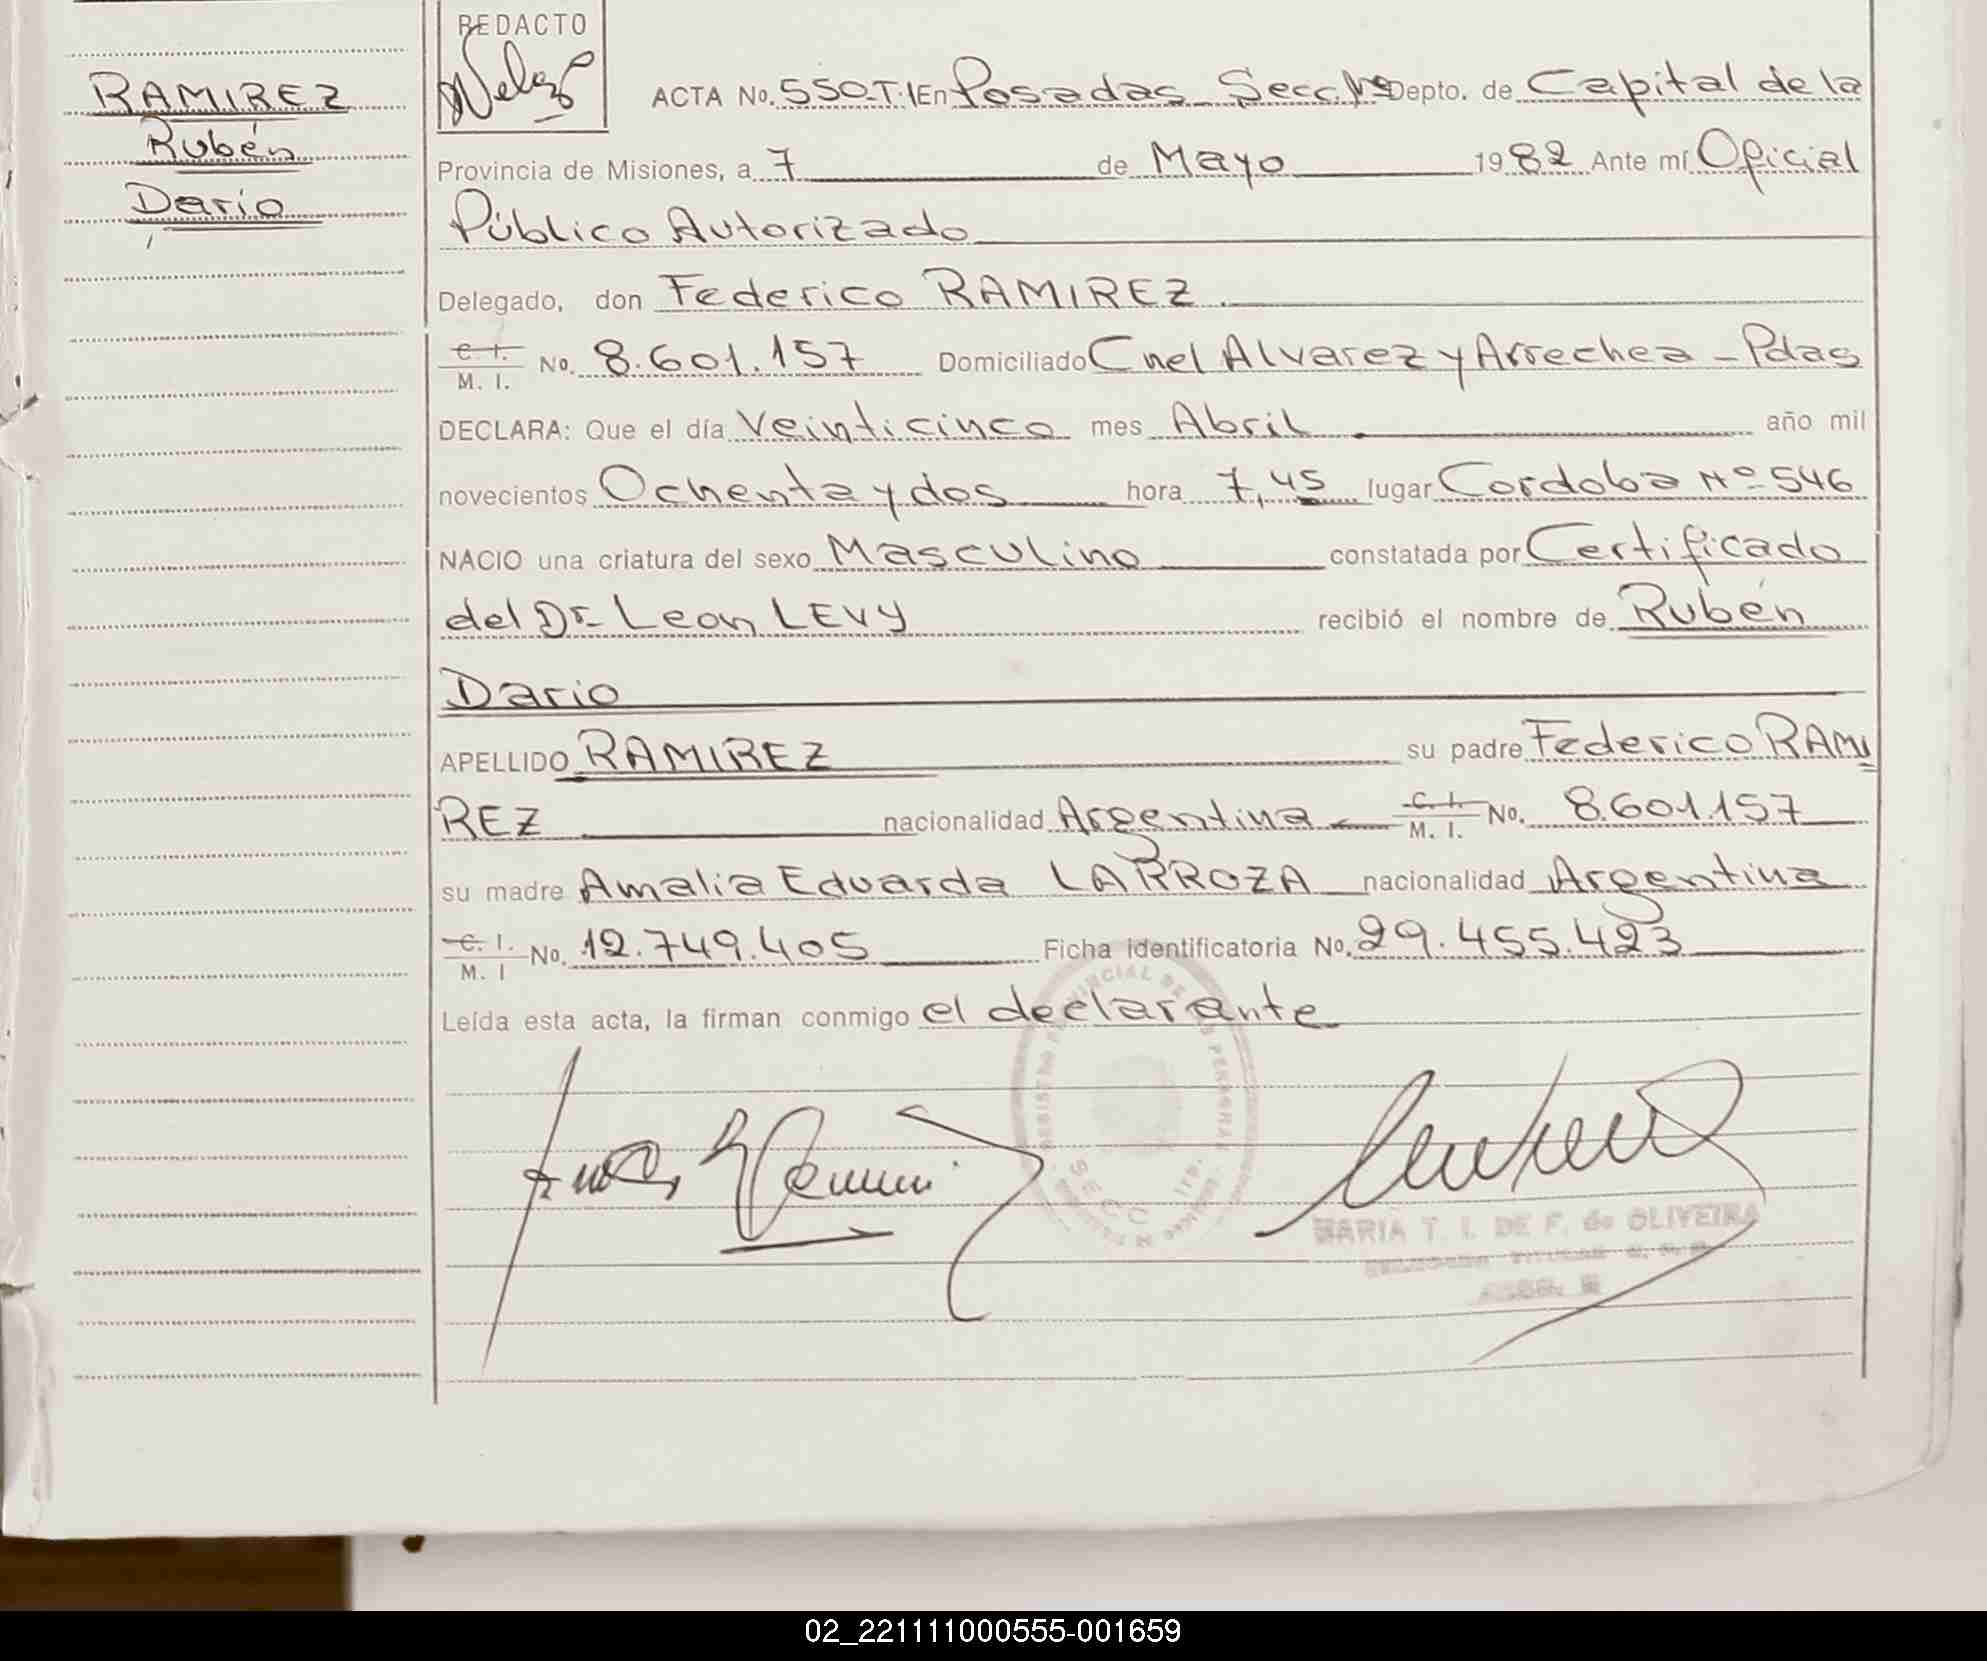 REDACTO
RAMIREZ
Rubén
Darío
ACTA No. 550-T.I En Posadas Secc. Depto. de Capital de la
Provincia de Misiones, a 7 de Mayo 1982 Ante mí Oficial
Público Autorizado
Delegado, don Federico RAMIREZ.
C. I.
M. I. No. 8.601.157 Domiciliado Cnel Alvarez y Arrechea - Pdas
DECLARA: Que el día Veinticinco mes Abril año mil
novecientos Ochenta y dos hora 7,45 lugar Cordoba Nº 546
NACIO una criatura del sexo Masculino constatada por Certificado
del Dr. Leon LEVY recibió el nombre de Rubén
Dario
APELLIDO RAMIREZ su padre Federico RAMI
REZ nacionalidad Argentina C. I.
M. I. No. 8.601.157
su madre Amalia Eduarda LARROZA nacionalidad Argentina
C. I.
M. I No. 12.749.405 Ficha identificatoria No. 29.455.423
Leída esta acta, la firman conmigo el declarante
MARIA T. I. DE F. de OLIVEIRA
02_221111000555-001659